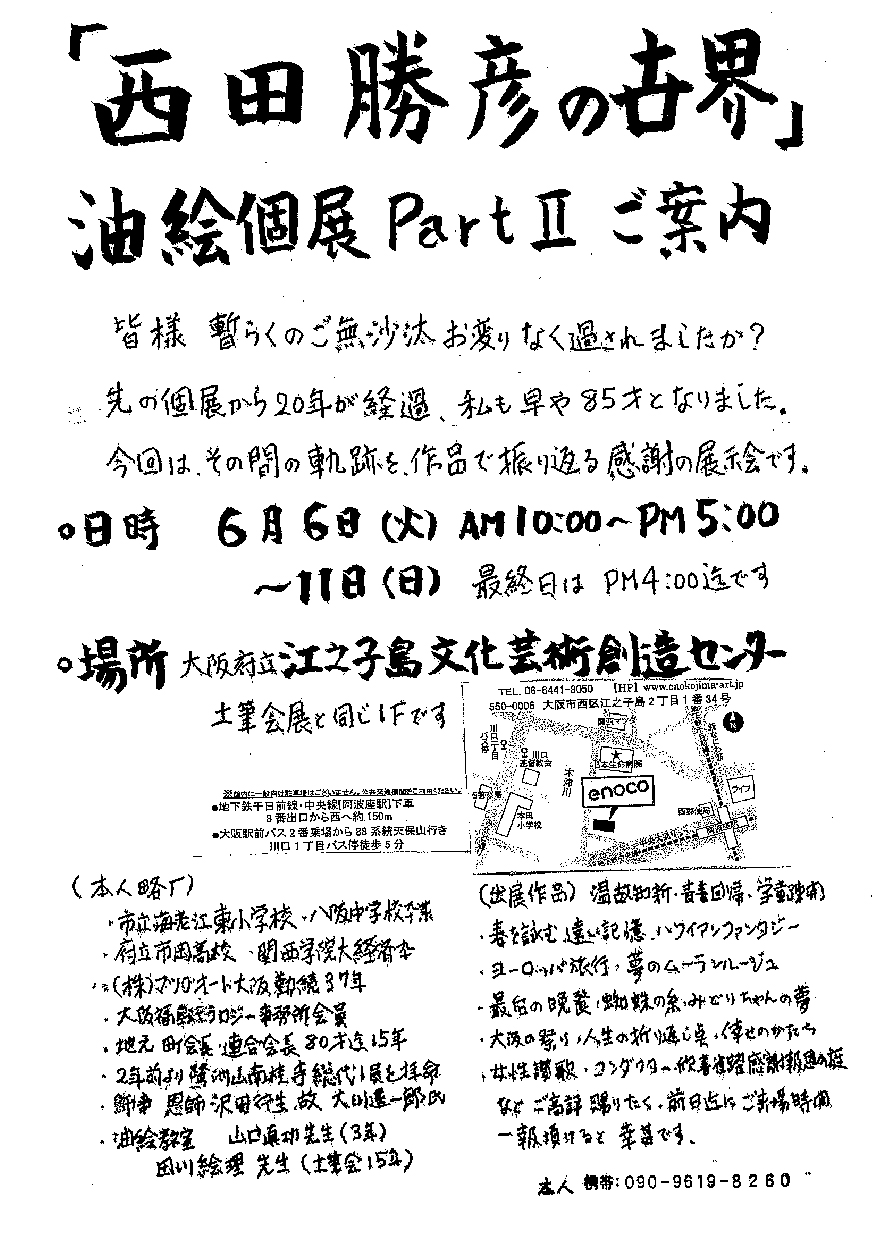 「西田勝彦の世界」
油絵個展 Part Ⅱ ご案内
皆様 暫らくのご無沙汰 お変りなく過されましたか?
先の個展から20年が経過、私も早や85才となりました。
今回は、その間の軌跡を、作品で振り返る感謝の展示会です。
○日時 6月6日(火) AM10:00~PM5:00
~11日(日) 最終日は PM4:00迄です
○場所 大阪府立江之子島文化芸術創造センター
土筆会展と同じ1Fです
TEL. 06-6441-8050 【HP】www.enokojima-art.jp
550-0006 大阪市西区江之子島2丁目1番34号
川口一丁目
バス停
川口
基督教会
木津川
日本生命病院
enoco
ライフ
本田
小学校
西郵便局
●地下鉄千日前線・中央線[阿波座駅]下車
8番出口から西へ約150m
●大阪駅前バス2番乗場から88系統天保山行き
川口1丁目バス停徒歩5分
(本人略丁)
・市立海老江東小学校・八阪中学校卒業
・府立市岡高校・関西学院大経済卒
・(株)マツダオート大阪勤続37年
・大阪 事務所会員
・地元 町会長・連合会長 80才迄15年
・2年前より 南桂寺総代1員を拝命
・師事 恩師 沢田 故 大川 一郎氏
・油絵教室 山口真功先生(3年)
田川絵理 先生(土筆会15年)
(出展作品) 温故知新・青春回帰・学童疎開
・春を詠む 遠い記憶・ハワイアンファンタジー
・ヨーロッパ旅行・夢のムーランルージュ
・最后の晩餐・蜘蛛の糸・みどりちゃんの夢
・大阪の祭り・人生の折り返し点・倖せのかたち
・女性讃歌・コンダクター・欣喜雀躍感謝報恩の
など ご高評 賜りたく、前日迄に ご来場時間
一報頂けると 幸甚です。
本人 携帯:090-9619-8260